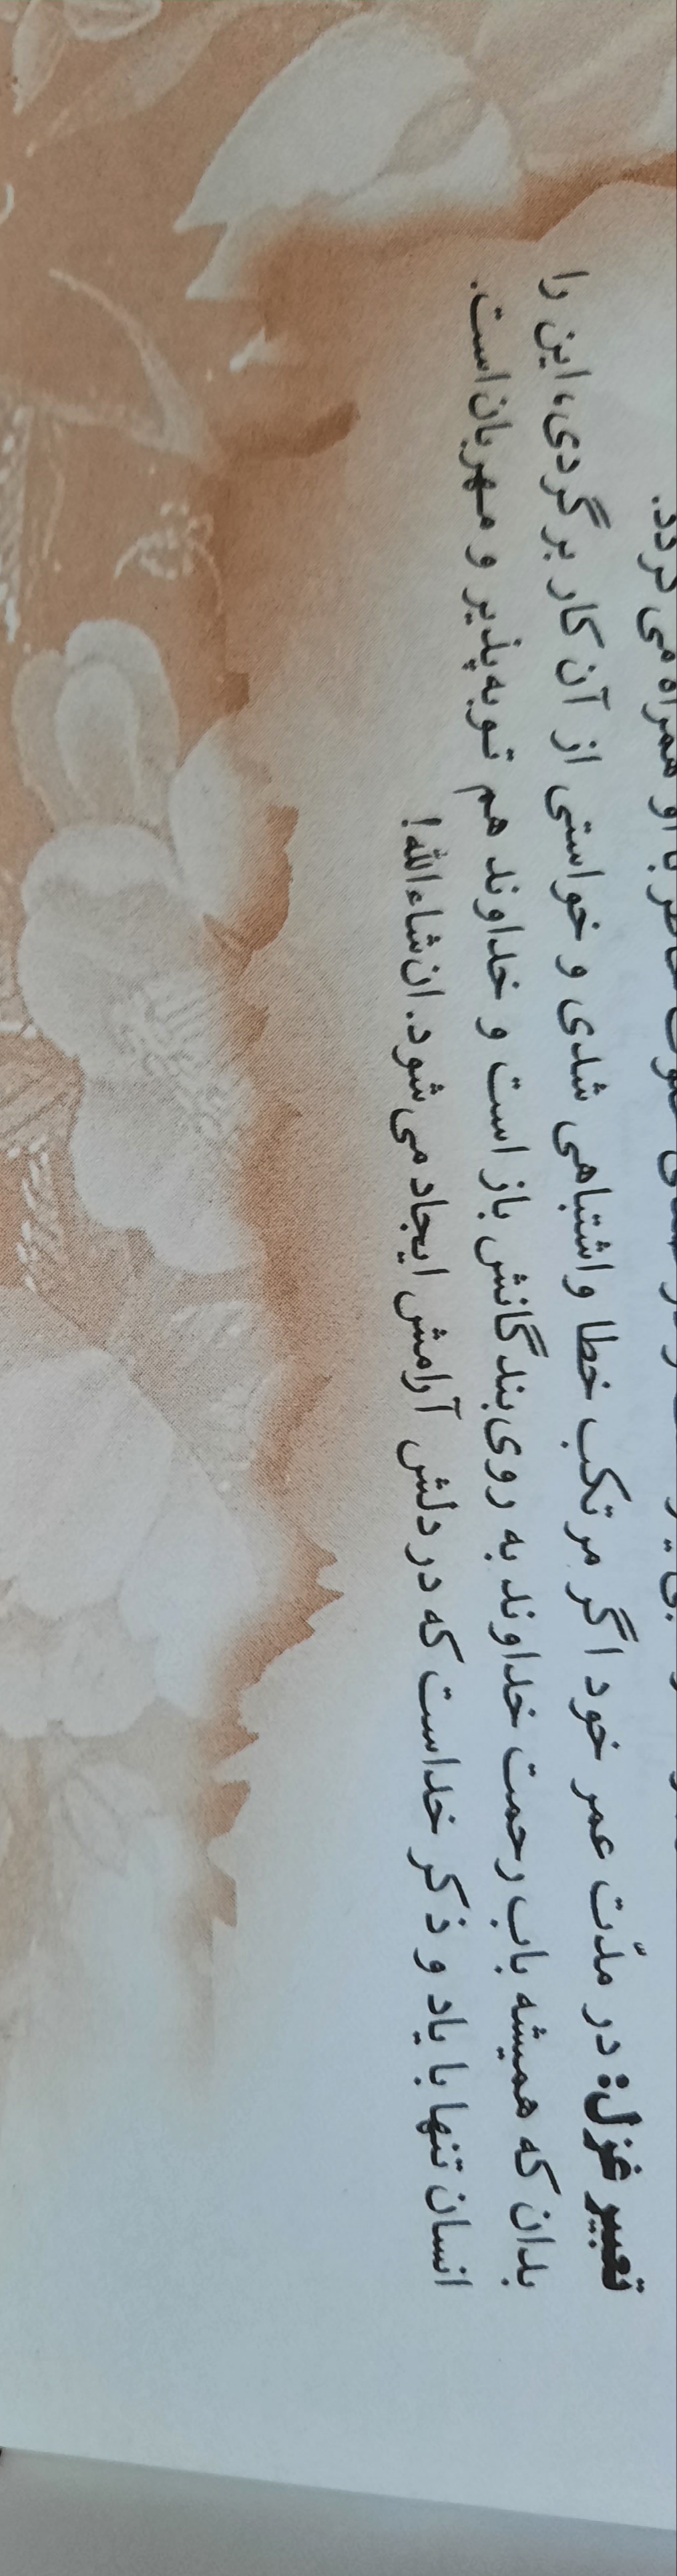 همراه می‌گردد.
تعبیر غزل: در مدّت عمر خود اگر مرتکب خطا و اشتباهی شدی و خواستی از آن کار برگردی، این را
بدان که همیشه باب رحمت خداوند به روی بندگانش باز است و خداوند هم توبه‌پذیر و مهربان است.
انسان تنها با یاد و ذکر خداست که در دلش آرامش ایجاد می‌شود. ان‌شاءالله!